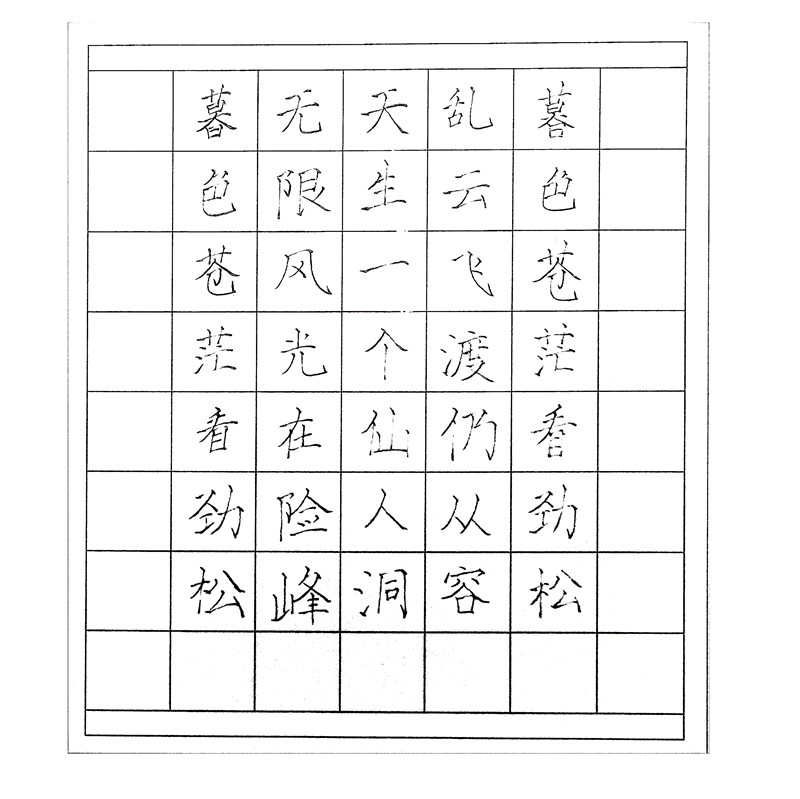 暮色苍茫看劲松
乱云飞渡仍从容
天生一个仙人洞
无限风光在险峰
暮色苍茫看劲松